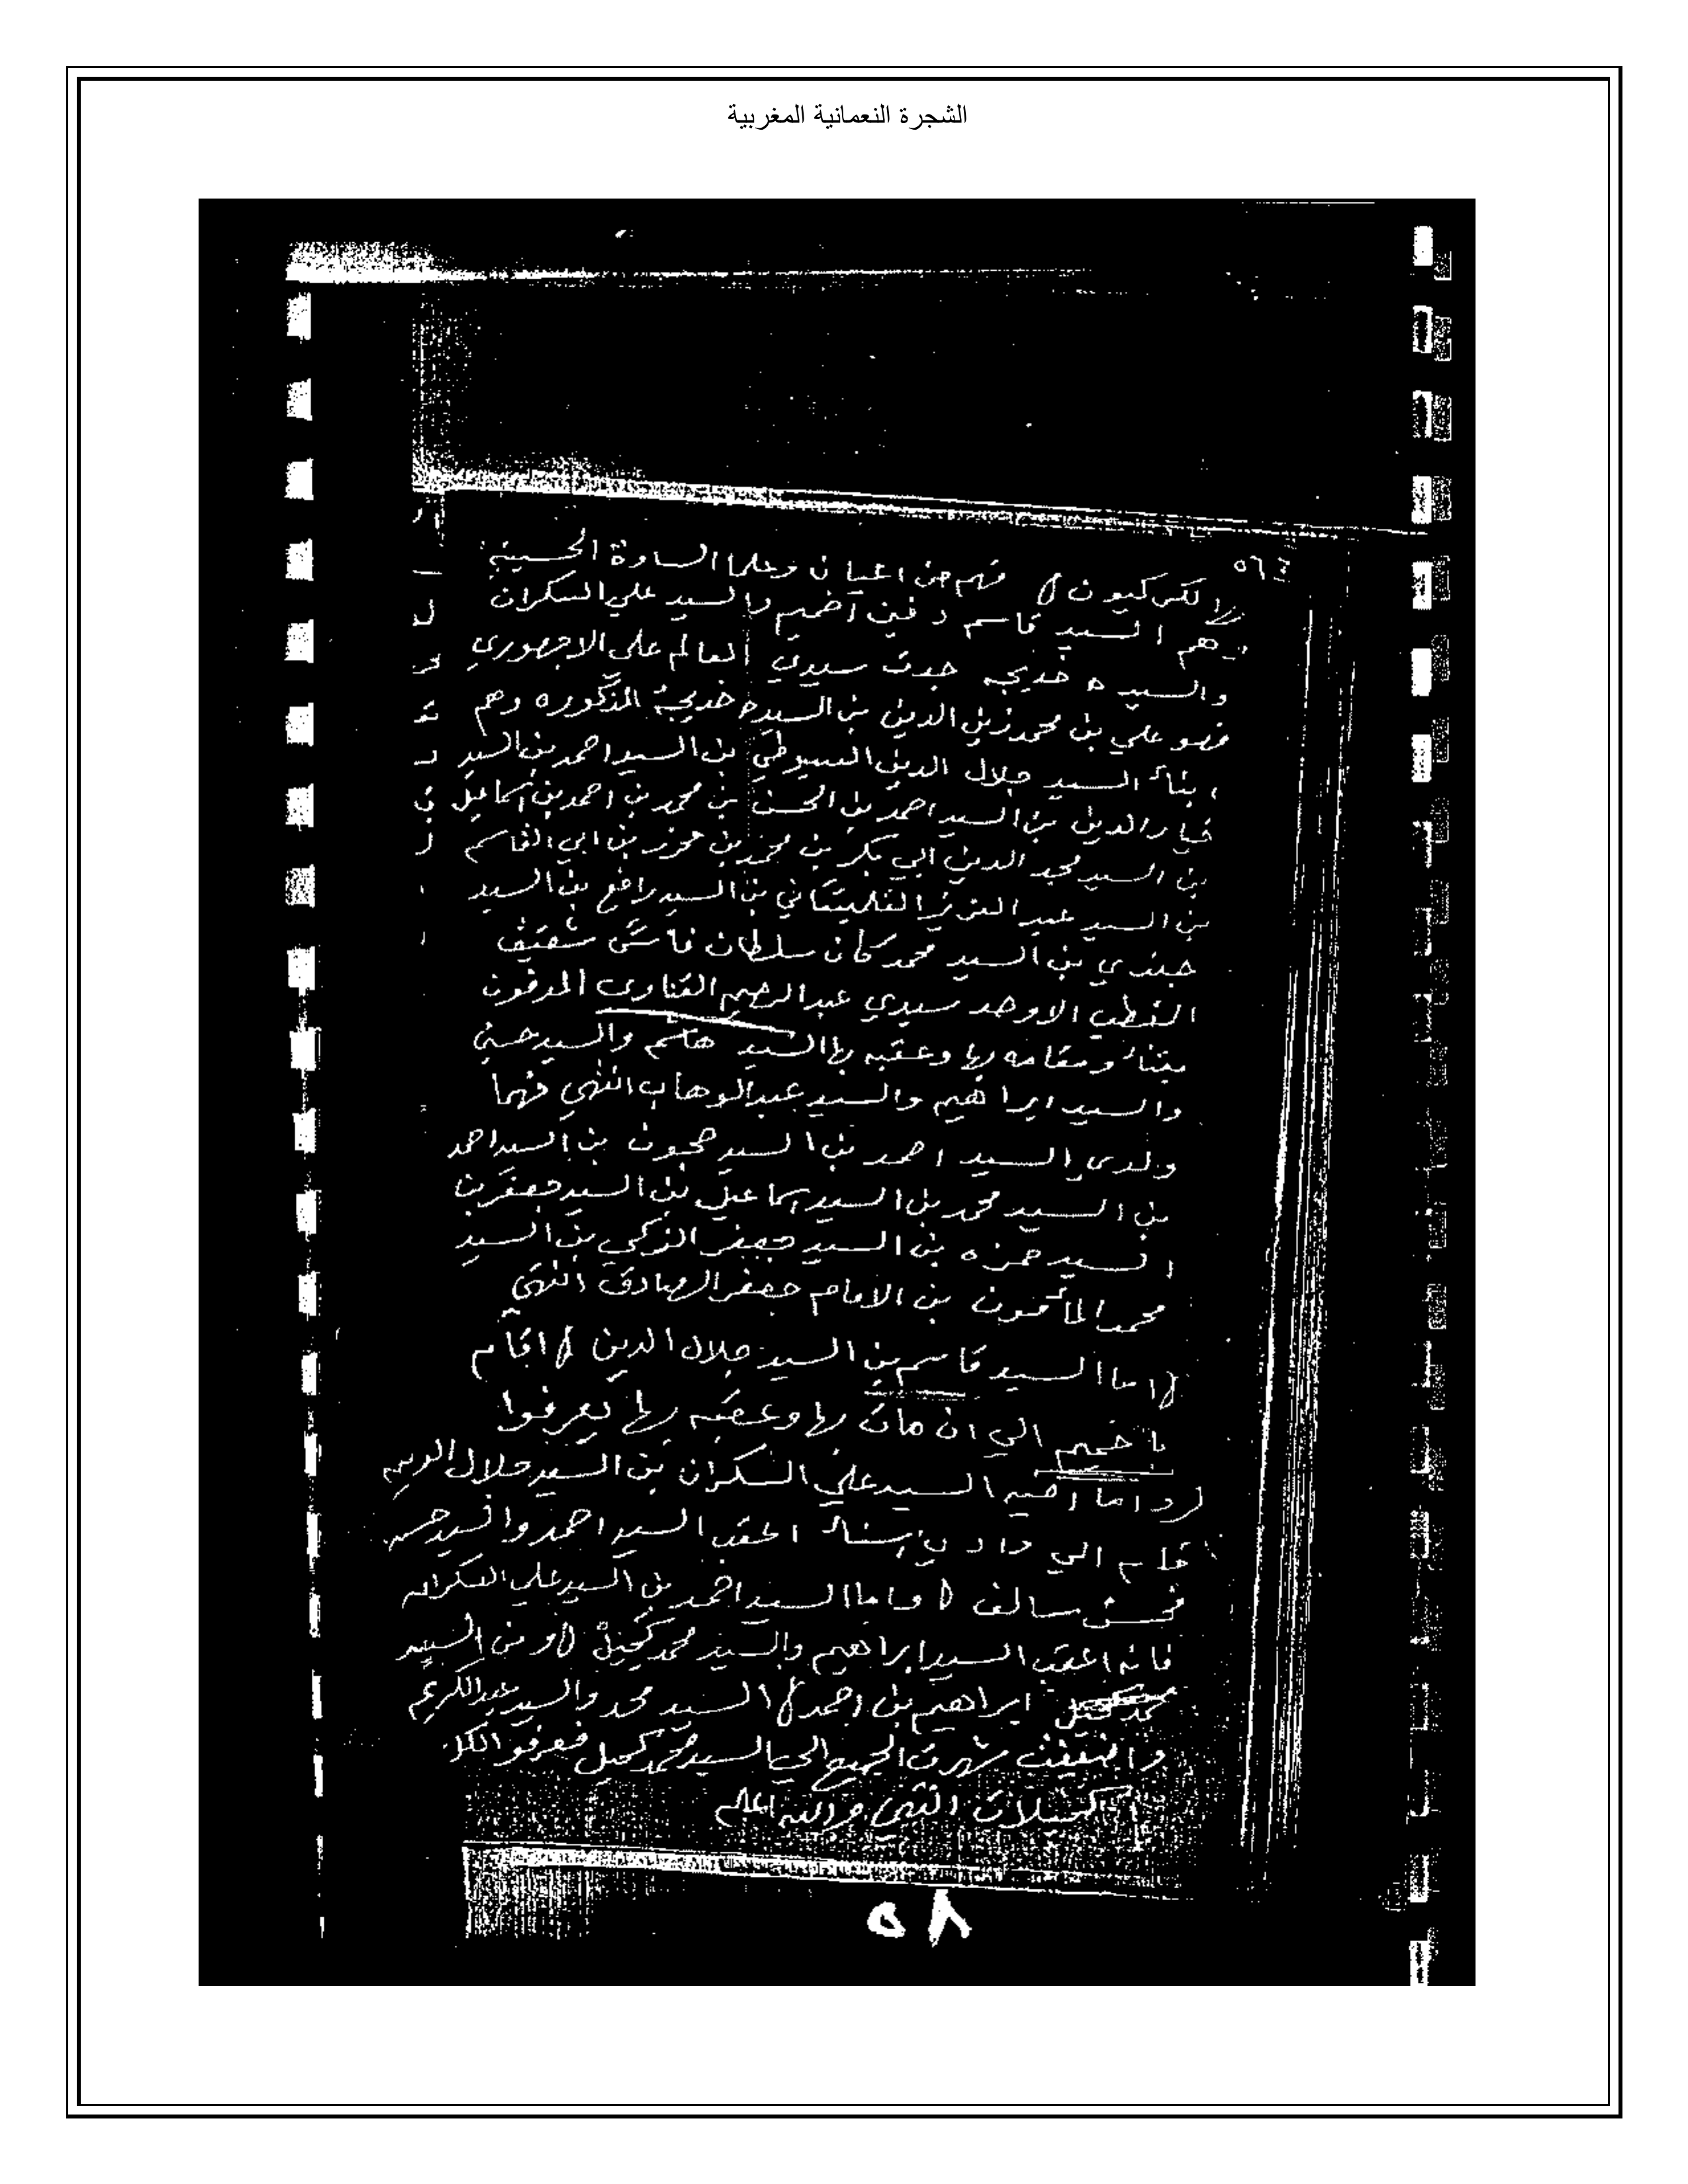 الشجرة النعمانية المغربية
فهم من اعيان وعلما السادة الحسينية
وهم السيد قاسم دفين اخميم والسيد علي السكران
والسيده خديجه جدت سيدي العالم على الاجهوري
فهو علي بن محمد زين الدين بن السيده خديجة المذكوره وهم
ابناء السيد جلال الدين السيوطي بن السيد احمد بن السيد
الدين بن السيد احمد بن الحسن بن محمد بن احمد بن اسماعيل
بن السيد الدين ابي بكر بن محمد بن بن ابي القاسم
بن السيد عبد العزيز بن السيد رافع بن السيد
جندي بن السيد محمد كان سلطان فاس شقيق
القطب الاوحد سيدي عبد الرحيم القناوى المدفون
بقناء ومقامه بها وعقبه بها السيد هاشم والسيد حسين
والسيد ابراهيم والسيد عبد الوهاب انتهي فهما
ولدي السيد احمد بن السيد حجون بن السيد احمد
بن السيد محمد بن السيد اسماعيل بن السيد جعفر بن
السيد حمزه بن السيد جعفر الزكي بن السيد
محمد المأمون بن الامام جعفر الصادق انتهى
اما السيد قاسم بن السيد جلال الدين اقام
باخميم الي ان مات بها وعقبه بها يعرفوا
واما اخيه السيد علي السكران بن السيد جلال الدين
الي اعقب السيد احمد والسيد
واما السيد احمد بن السيد علي السكران
فانه اعقب السيد ابراهيم والسيد محمد كحيل ومن السيد
ابراهيم بن احمد السيد محمد والسيد عبد الكريم
شهرت الجميع الى السيد محمد كحيل فعرفوا
انتهى والله اعلم
٥٨